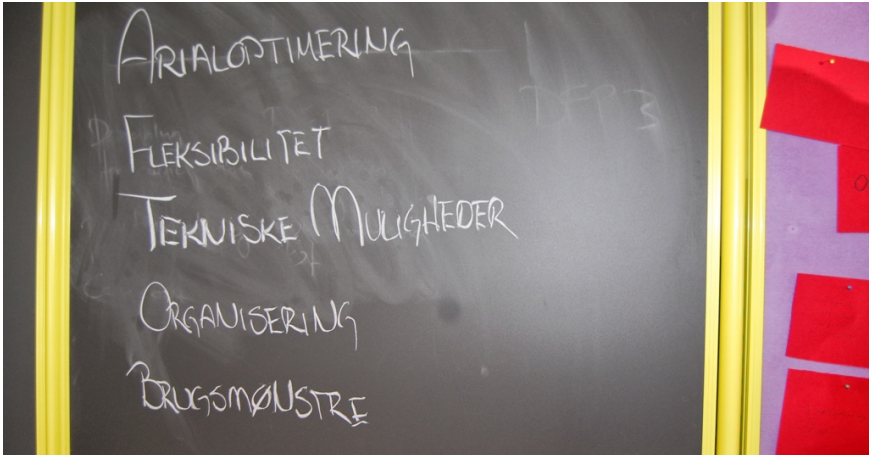 ARIALOPTIMERING
FLEKSIBILITET
TEKNISKE MULIGHEDER
ORGANISERING
BRUGSMØNSTRE